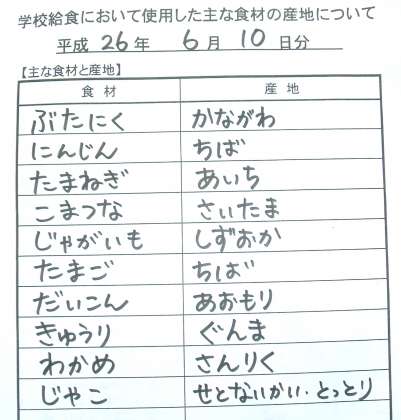 学校給食において使用した主な食材の産地について
平成 26 年 6 月 10 日分
【主な食材と産地】
食 材 産 地
ぶたにく かながわ
にんじん ちば
たまねぎ あいち
こまつな さいたま
じゃがいも しずおか
たまご ちば
だいこん あおもり
きゅうり ぐんま
わかめ さんりく
じゃこ せとないかい・とっとり